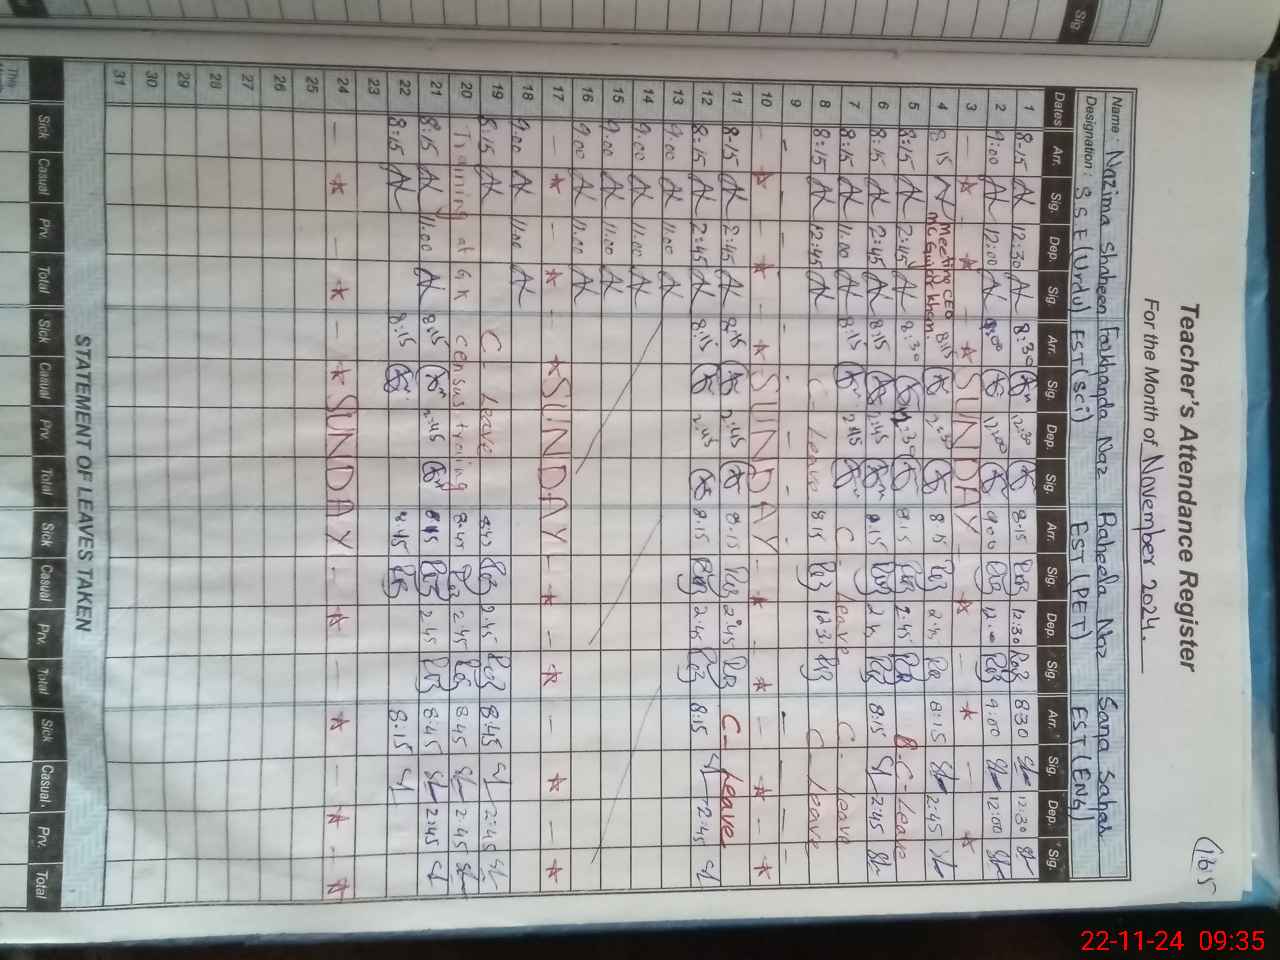 Sig.
(165
Teacher's Attendance Register
For the Month of November 2024.
Name: Nazima Shaheen Farkhanda Naz Raheela Naz Sana Sahar
Designation: S S E (Urdu) EST (sci) EST (PET) EST (ENG)
Dates Arr. Sig. Dep. Sig. Arr. Sig. Dep. Sig. Arr. Sig. Dep. Sig. Arr. Sig. Dep. Sig.
1 8-15 12:30 8:30 12:30 8-15 12:30 830 12:30
2 9:00 12:00 12:00 9:00 9:00 12:00
3 - - - SUNDAY - - -
4 8:15 Meeting CEO 8:15 2:30 8 15 8:15 2:45
5 8:15 2:45 8:30 2:30 8.15 2:45 C-Leave
6 8:15 2:45 8:15 2:45 8.15 8:15 2:45
7 8:15 11.00 8:15 2:45 C Leave C - Leave
8 8:15 12:45 C - Leave 8 15 C - Leave
9 - - - - - - -
10 - - - SUNDAY - - -
11 8-15 2:45 8:15 2:45 8-15 2:45 C - Leave
12 8:15 2:45 8:15 2:45 8.15 2:45 8:15 2:45
13 9.00 11.00
14 9.00 11.00
15 9.00 11.00
16 9.00 11.00
17 - - SUNDAY - - -
18 9.00 11.00
19 8:15 C - Leave 8:45 2:45 8:45 2:45
20 Training at census 8:45 2:45 8:45 2:45
21 8:15 11.00 8:15 2:45 8:15 2:45 8:45 2:45
22 8:15 8:15 8:15 8:15
23
24 - - - SUNDAY - - - -
25
26
27
28
29
30
31
STATEMENT OF LEAVES TAKEN
Sick Casual Prv. Total Sick Casual Prv. Total Sick Casual Prv. Total Sick Casual. Prv. Total
This
22-11-24 09:35